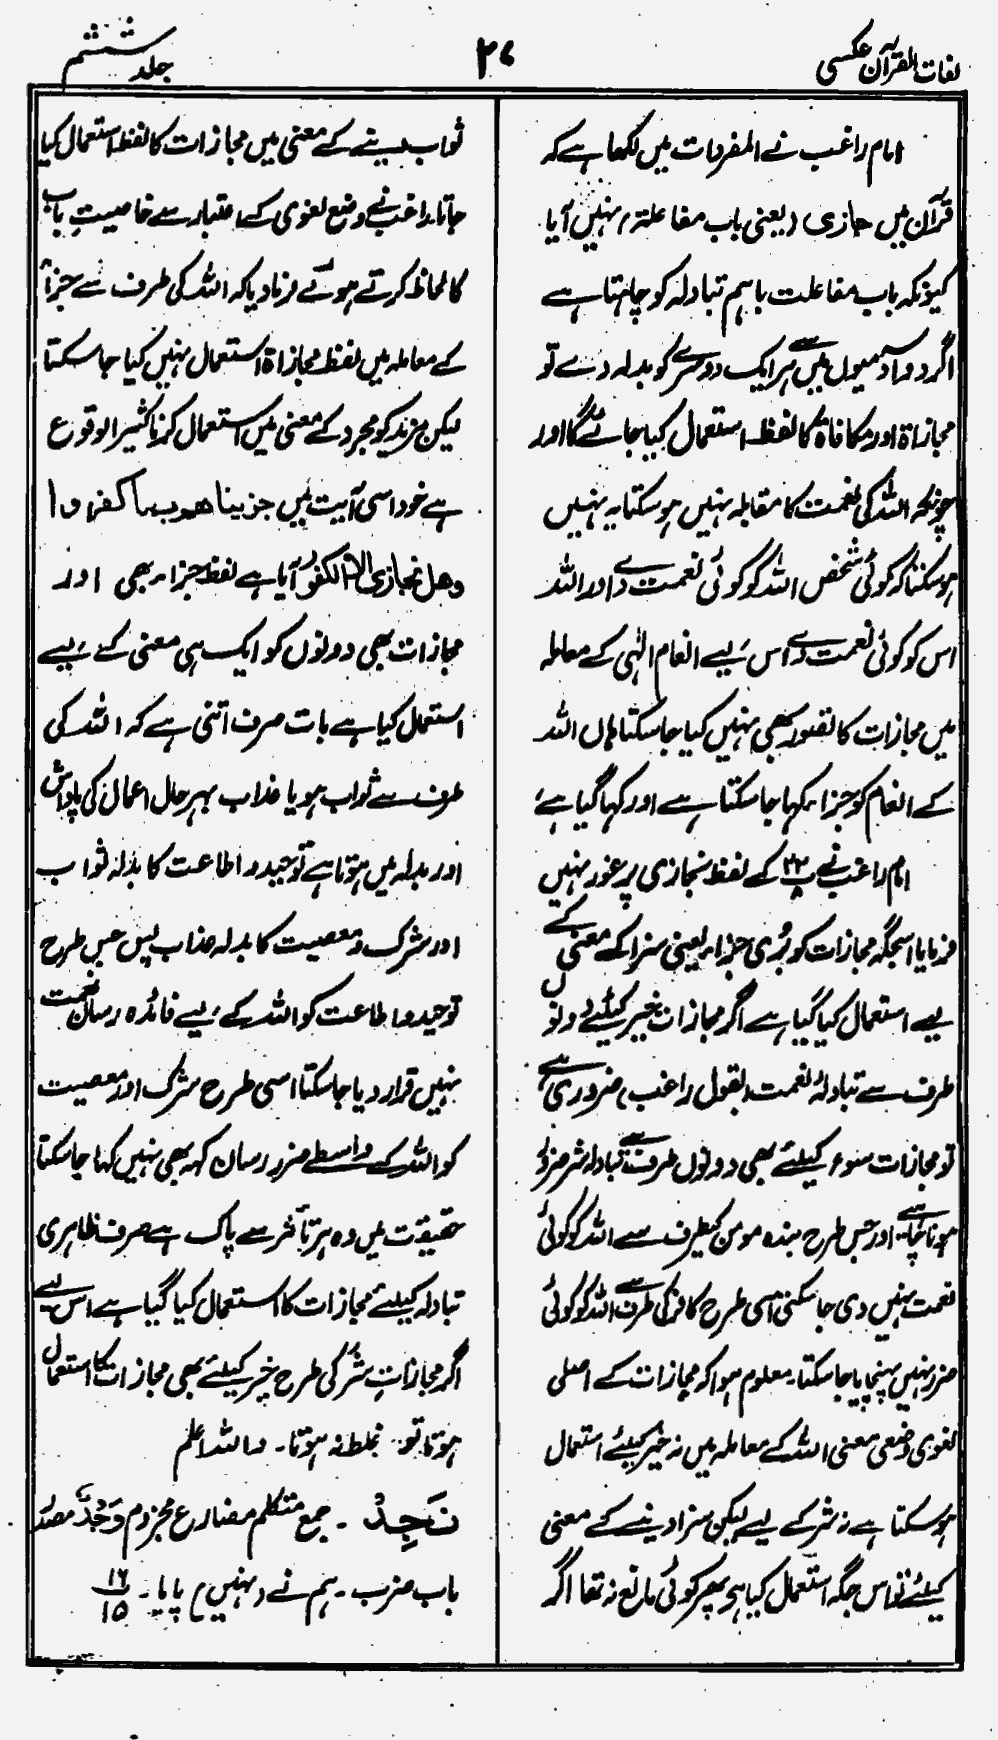 لغات القرآن عکسی
۲۷
جلد ششم
امام راغب نے المفردات میں لکھا ہے کہ
قرآن میں جازی (یعنی باب مفاعلتہ) نہیں آیا
کیونکہ باب مفاعلت باہم تبادلہ کو چاہتا ہے
اگر دو آدمیوں میں سے ہر ایک دوسرے کو بدلہ دے تو
مجازاۃ اور مکافاۃ کا لفظ استعمال کیا جائے گا اور
چونکہ اللہ کی نعمت کا مقابلہ نہیں ہو سکتا یہ نہیں
ہو سکتا کہ کوئی شخص اللہ کو کوئی نعمت دے اور اللہ
اس کو کوئی نعمت دے اس لیے انعام الٰہی کے معاملہ
میں مجازات کا تصور بھی نہیں کیا جا سکتا ہاں اللہ
کے انعام کو جزاء کہا جا سکتا ہے اور کہا گیا ہے
امام راغب نے ۲۲/۸ کے لفظ نجازی پر غور نہیں
فرمایا اسجگہ مجازات کو بُری جزاء یعنی سزا کے معنی کے
لیے استعمال کیا گیا ہے اگر مجازات خیر کیلئے دونوں
طرف سے تبادلۂ نعمت بقول راغب، ضروری ہے
تو مجازات سوء کیلئے بھی دونوں طرف سے تبادلہ شر ضرور
ہونا چاہیے اور جس طرح بندہ مومن کیطرف سے اللہ کو کوئی
نعمت نہیں دی جا سکتی اسی طرح کافر کی طرف سے اللہ کو کوئی
ضرر نہیں پہنچایا جا سکتا۔ معلوم ہوا کہ مجازات کے اصلی
لغوی وضعی معنی اللہ کے معاملہ میں نہ خیر کیلئے استعمال
ہو سکتا ہے نہ شر کے لیے لیکن سزا دینے کے معنی
کیلئے تو اس جگہ استعمال کیا ہی ہے پھر کوئی مانع نہ تھا اگر
ثواب دینے کے معنی میں مجازات کا لفظ استعمال کیا
جاتا۔ راغب نے وضع لغوی کے اعتبار سے خاصیتِ باب
کا لحاظ کرتے ہوئے فرما دیا کہ اللہ کی طرف سے جزاء
کے معاملہ میں لفظ مجازاۃ استعمال نہیں کیا جا سکتا
لیکن مزید کو مجرد کے معنی میں استعمال کرنا کثیر الوقوع
ہے خود اسی آیت میں جزینا ھم بما کفروا
وھل نجازی الا الکفور آیا ہے لفظ جزاء بھی اور
مجازات بھی دونوں کو ایک ہی معنی کے لیے
استعمال کیا ہے بات صرف اتنی ہے کہ اللہ کی
طرف سے ثواب ہو یا عذاب بہرحال اعمال کی پاداش
اور بدلہ میں ہوتا ہے توحید و اطاعت کا بدلہ ثواب
اور شرک و معصیت کا بدلہ عذاب پس جس طرح
توحید و اطاعت کو اللہ کے لیے فائدہ رسان نعمت
نہیں قرار دیا جا سکتا اسی طرح شرک اور معصیت
کو اللہ کے واسطے ضرر رسان کہہ بھی نہیں کہا جا سکتا
حقیقت میں وہ ہر تأثر سے پاک ہے صرف ظاہری
تبادلہ کیلئے مجازات کا استعمال کیا گیا ہے اس لیے
اگر مجازاتِ شر کی طرح خیر کیلئے بھی مجازات کا استعمال
ہوتا تو غلط نہ ہوتا۔ واللہ اعلم
نَجِدْ۔ جمع متکلم مضارع مجزوم وَجْدٌ مصدر
باب ضرب۔ ہم نے (نہیں) پایا۔ ۱۶/۱۵